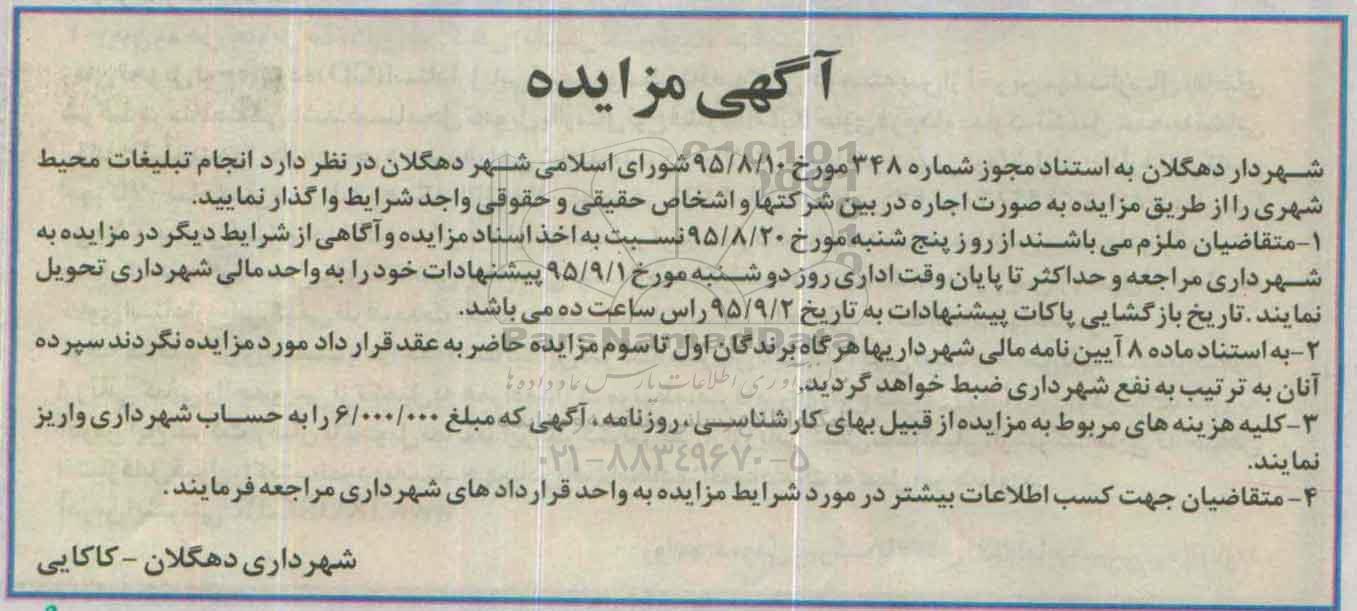 آگهی مزایده
شهردار دهگلان به استناد مجوز شماره ۳۴۸ مورخ ۹۵/۸/۱۰ شورای اسلامی شهر دهگلان در نظر دارد انجام تبلیغات محیط
شهری را از طریق مزایده به صورت اجاره در بین شرکتها و اشخاص حقیقی و حقوقی واجد شرایط واگذار نمایید.
۱-متقاضیان ملزم می باشند از روز پنج شنبه مورخ ۹۵/۸/۲۰ نسبت به اخذ اسناد مزایده و آگاهی از شرایط دیگر در مزایده به
شهرداری مراجعه و حداکثر تا پایان وقت اداری روز دو شنبه مورخ ۹۵/۹/۱ پیشنهادات خود را به واحد مالی شهرداری تحویل
نمایند. تاریخ بازگشایی پاکات پیشنهادات به تاریخ ۹۵/۹/۲ راس ساعت ده می باشد.
ParsNamadData
۲-به استناد ماده ۸ آیین نامه مالی شهرداریها هرگاه برندگان اول تا سوم مزایده حاضر به عقد قرار داد مورد مزایده نگردند سپرده
آنان به ترتیب به نفع شهرداری ضبط خواهد گردید.
۳-کلیه هزینه های مربوط به مزایده از قبیل بهای کارشناسی، روزنامه، آگهی که مبلغ ۶/۰۰۰/۰۰۰ را به حساب شهرداری واریز
نمایند.
۰۲۱-۸۸۳۴۹۶۷۰-۵
۴- متقاضیان جهت کسب اطلاعات بیشتر در مورد شرایط مزایده به واحد قرارداد های شهرداری مراجعه فرمایند.
شهرداری دهگلان - کاکایی